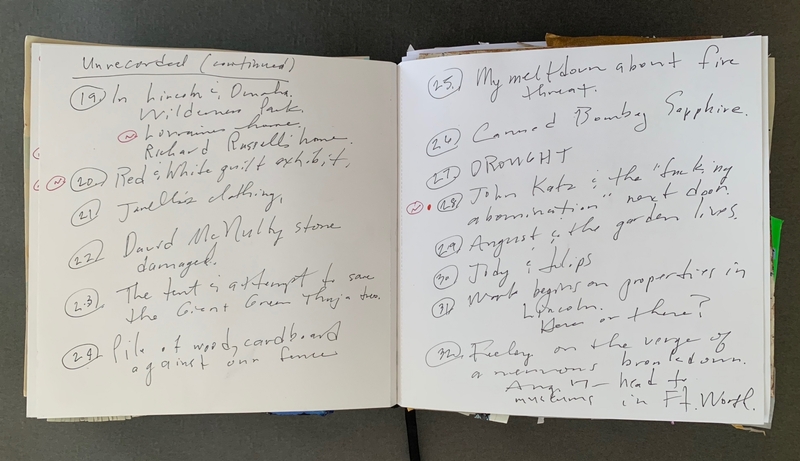 Unrecorded (continued)
19. In Lincoln & Omaha.
Wilderness Park.
N Lorraines home
Richard Russell's home.
N 20. Red & White quilt exhibit.
21 Janelle's clothing.
22. David McNulty stone
damaged.
23. The tent & attempt to save
the Giant Green Thuja tree.
24. Pile of wood, cardboard
against our fence
25. My meltdown about fire
threat.
26. Canned Bombay Sapphire.
27. DROUGHT
N 28. John Katz & the "fucking
abomination" next door.
29. August & the garden lives.
30. Jody & tulips
31. Work begins on properties in
Lincoln.
Here or there?
32. Feeling on the verge of
a nervous breakdown.
Aug. 17 – head to
museums in Ft. Worth.